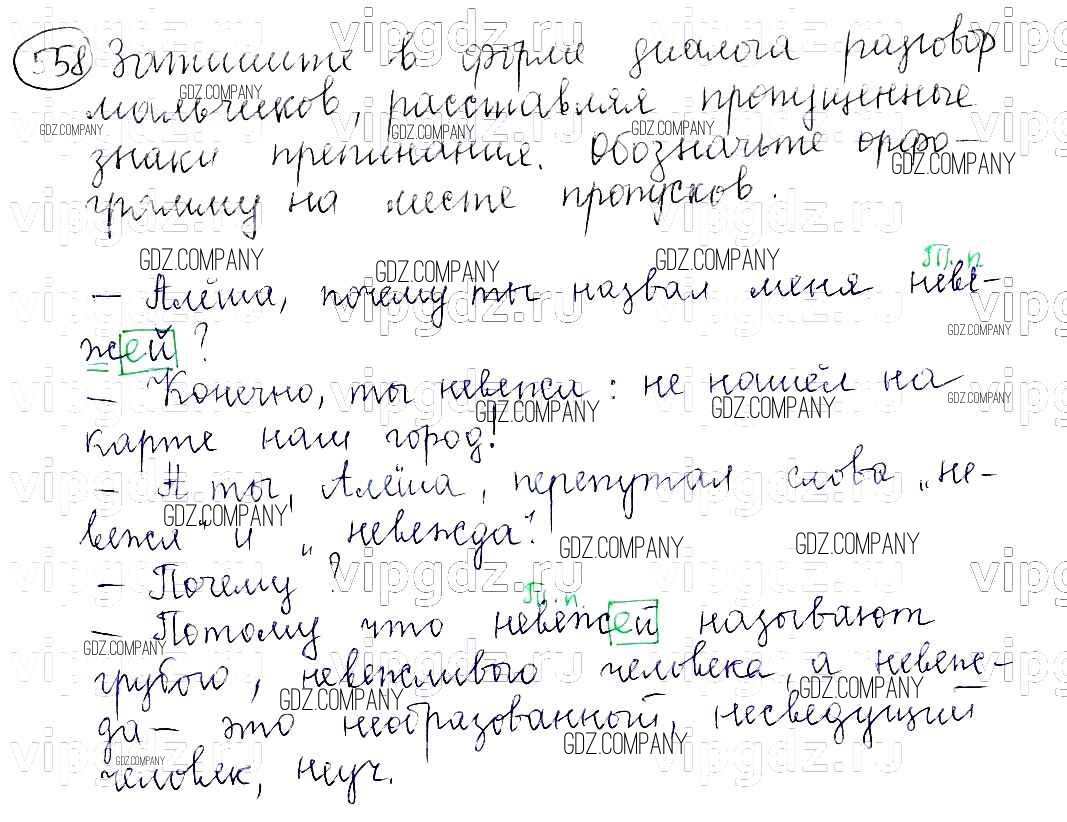 558 Запишите в форме диалога разговор
мальчиков, расставляя пропущенные
знаки препинания. Обозначьте орфо-
грамму на месте пропусков.
Тв. п.
— Алёша, почему ты назвал меня неве-
жей?
— Конечно, ты невежа: не нашёл на
карте наш город!
— А ты, Алёша, перепутал слова „не-
вежа" и „невежда".
— Почему?
Тв. п.
— Потому что невежей называют
грубого, невежливого человека, а невеж-
да — это необразованный, несведущий
человек, неуч.